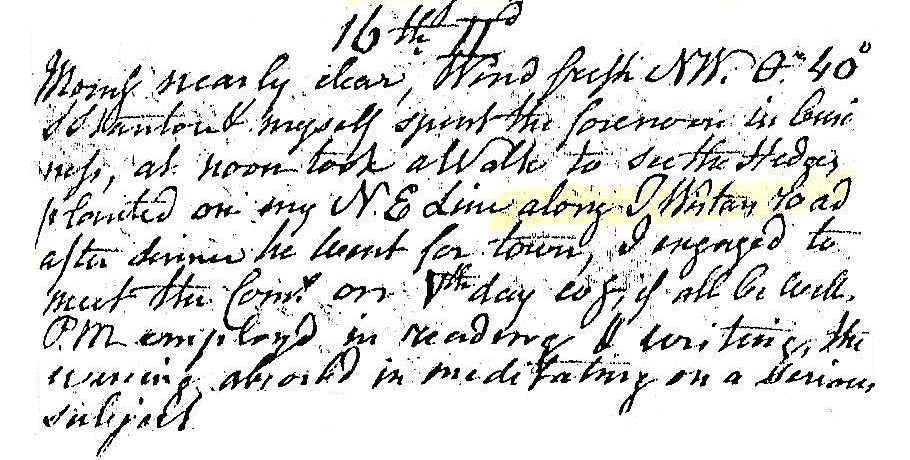 16th IId
Morng nearly clear, Wind fresh NW. Or 40°
& myself spent the forenoon in busi
ness, at noon took a Walk to see the Hedges
planted on my N.E Line along I Wistars road
after dinner he went for town, I engaged to
meet the Comt. on Vth day evg, if all be well.
P.M employd in reading & writing, the
evening absorbd in meditating on a serious
subject